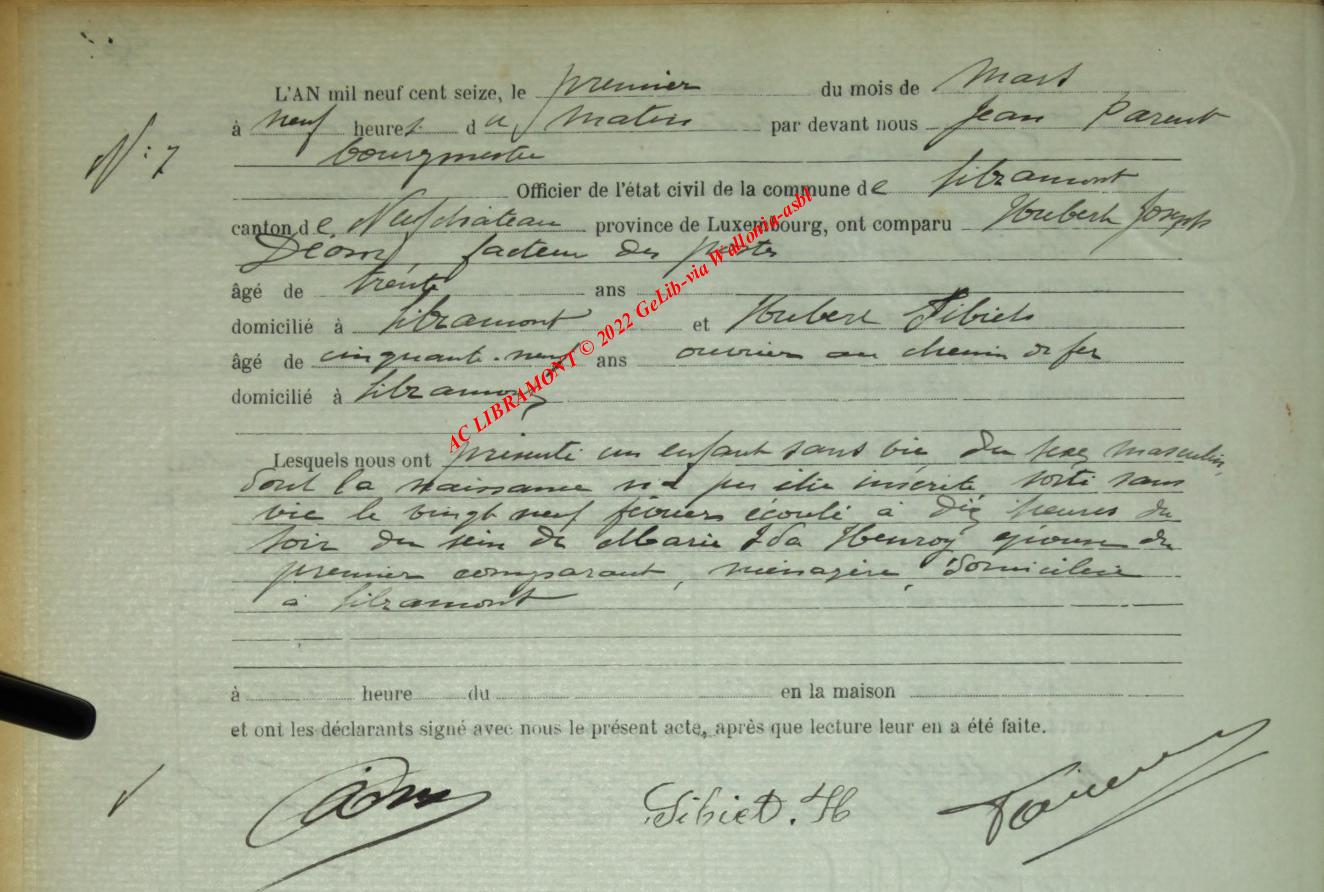 L'AN mil neuf cent seize, le premier du mois de Mars
à neuf heures du matin par devant nous Jean Parent
N°: 7
bourgmestre
Officier de l'état civil de la commune de Libramont
canton de Neufchâteau province de Luxembourg, ont comparu Hubert Joseph
Deom, facteur des postes
âgé de trente ans
domicilié à Libramont et Hubert Sibiet
âgé de cinquante-neuf ans ouvrier au chemin de fer
domicilié à Libramont
AC LIBRAMONT © 2022 GeLib-via Wallonia-asbl
Lesquels nous ont présenté un enfant sans vie du sexe masculin,
dont la naissance n'a pas été inscrite sorti sans
vie le vingt neuf février écoulé à dix heures du
soir du sein de Marie Ida Henroy épouse du
premier comparant, ménagère, domiciliée
à Libramont
à heure du en la maison
et ont les déclarants signé avec nous le présent acte, après que lecture leur en a été faite.
Sibiet. H